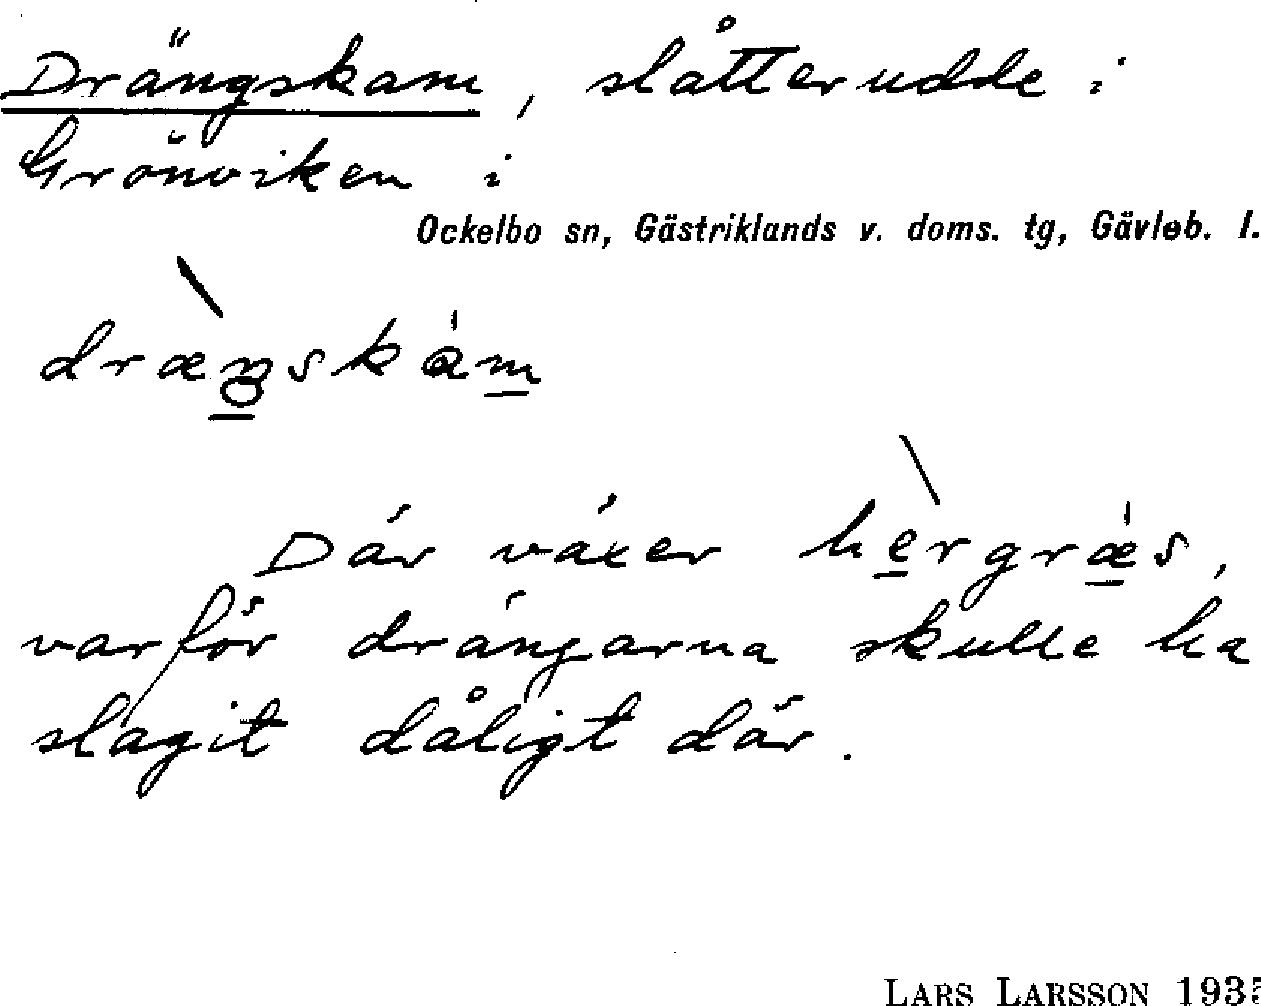 Drängskam, slåtterudde i
Grönviken i
Ockelbo sn, Gästriklands v. doms. tg, Gävleb. l.
dræŋskàm
Där växer hergræs,
varför drängarna skulle ha
slagit dåligt där.
LARS LARSSON 193